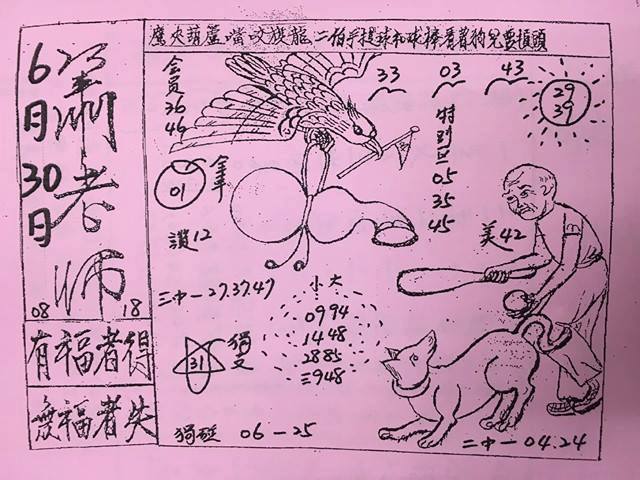 6月30日
蕭老師
08 18
有福者得
無福者失
鷹夾葫蘆嘴咬旗龍二伯手提球和球棒看着狗兒要搖頭
会员
36
46
33 03 43
29
39
特別旦
05
35
45
01
讚12
美42
三中一27.37.47
小大
0994
1448
2885
三948
31
獨支
獨碰 06-25
二中一04.24